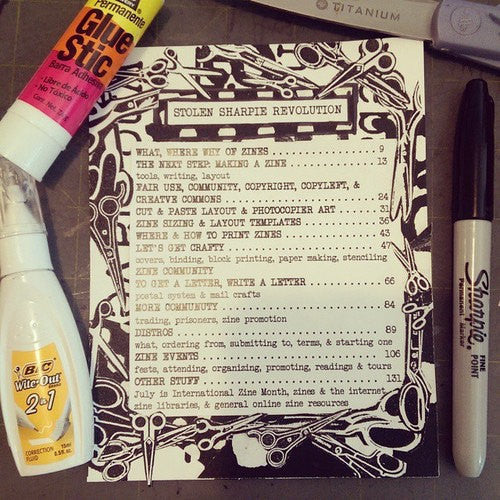 Permanente
Glue
Stic
Barra Adhesiva
- Libre de Ácido
- No Tóxico
TITANIUM
STOLEN SHARPIE REVOLUTION
WHAT, WHERE WHY OF ZINES 9
THE NEXT STEP: MAKING A ZINE 13
tools, writing, layout
FAIR USE, COMMUNITY, COPYRIGHT, COPYLEFT, &
CREATVE COMMONS 24
CUT & PASTE LAYOUT & PHOTOCOPIER ART 31
ZINE SIZING & LAYOUT TEMPLATES 36
WHERE & HOW TO PRINT ZINES 43
LET'S GET CRAFTY 47
covers, binding, block printing, paper making, stenciling
ZINE COMMUNITY
TO GET A LETTER, WRITE A LETTER 66
postal system & mail crafts
MORE COMMUNITY 84
trading, prisoners, zine promotion
DISTROS 89
what, ordering from, submitting to, terms, & starting one
ZINE EVENTS 106
fests, attending, organizing, promoting, readings & tours
OTHER STUFF 131
July is International Zine Month, zines & the internet
zine libraries, & general online zine resources
BIC
Wite-Out
2 in 1
CORRECTION
FLUID
15ml
0.5fl.oz.
Sharpie
FINE
POINT
Permanent Marker